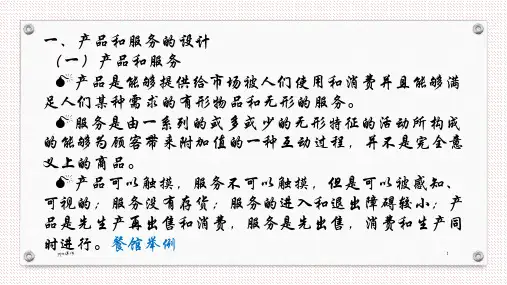 一、产品和服务的设计
（一）产品和服务
产品是能够提供给市场被人们使用和消费并且能够满
足人们某种需求的有形物品和无形的服务。
服务是由一系列的或多或少的无形特征的活动所构成
的能够为顾客带来附加值的一种互动过程，并不是完全意
义上的商品。
产品可以触摸，服务不可以触摸，但是可以被感知、
可视的；服务没有存货；服务的进入和退出障碍较小；产
品是先生产再出售和消费，服务是先出售，消费和生产同
时进行。餐馆举例
1